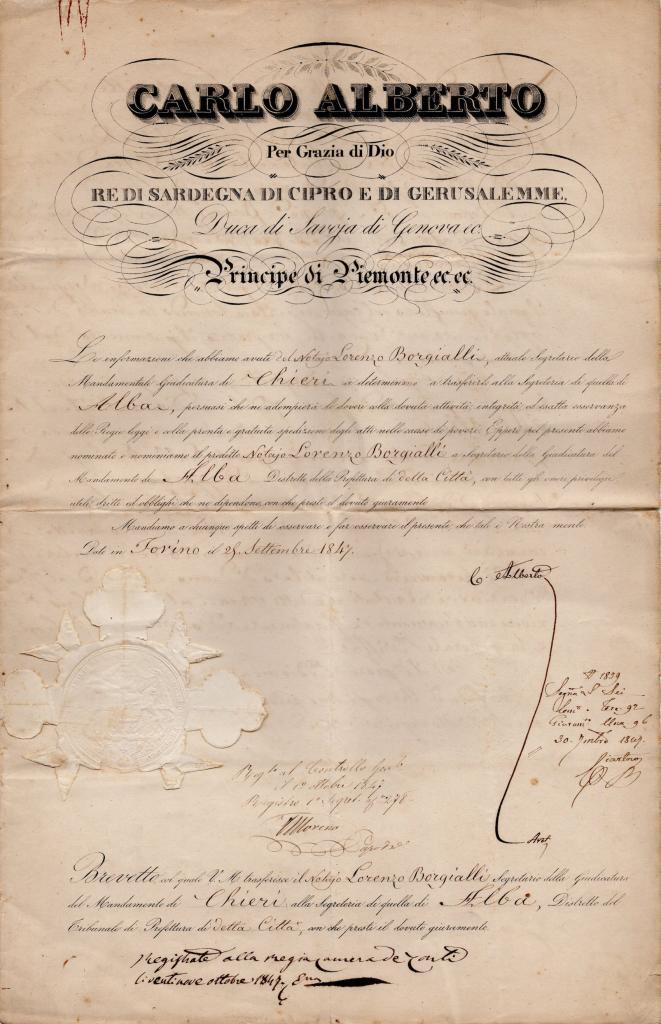 CARLO ALBERTO
Per Grazia di Dio
RE DI SARDEGNA DI CIPRO E DI GERUSALEMME,
Duca di Savoja di Genova ec.
Principe di Piemonte ec. ec.
Le informazioni che abbiamo avute del Notajo Lorenzo Borgialli, attuale Segretario della
Mandamentale Giudicatura di Chieri ci determinano a trasferirlo alla Segreteria di quella di
Alba, persuasi che ne adempierà li doveri colla dovuta attività, integrità ed esatta osservanza
delle Regie leggi e colla pronta e gratuita spedizione degli atti nelle cause de' poveri. Epperò pel presente abbiamo
nominato e nominiamo il predetto Notajo Lorenzo Borgialli a Segretario della Giudicatura del
Mandamento di Alba Distretto della Prefettura di detta Città, con tutti gli onori privilegii
utili dritti ed obblighi che ne dipendono, con che presti il dovuto giuramento
Mandiamo a chiunque spetti di osservare e far osservare il presente, che tale è Nostra mente.
Dato in Torino il 25 Settembre 1847.
C. Alberto
N 1839
30. 7mbre 1847.
Regto al Controllo Genle
il 1o ottobre 1847
Registro 1o Segreti fo 278
Moreno
Avet
Brevetto col quale V. M. trasferisce il Notajo Lorenzo Borgialli Segretario della Giudicatura
del Mandamento di Chieri alla Segreteria di quella di Alba, Distretto del
Tribunale di Prefettura di detta Città, con che presti il dovuto giuramento.
Registrate alla Regia Camera de' Conti
li ventinove ottobre 1847